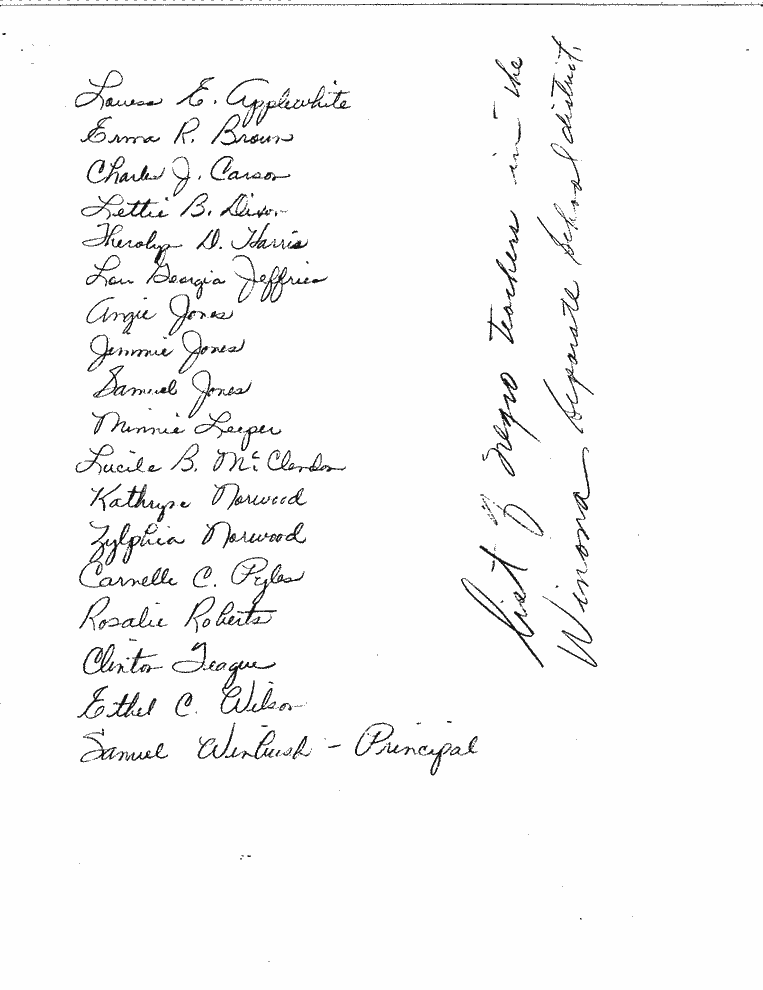 Louise E. Applewhite
Erma R. Brown
Charles J. Carson
Lettie B. Dixon
D. Harris
Lou Georgia Jeffries
Angie Jones
Jemmie Jones
Samuel Jones
Minnie Leeper
Lucile B. McClendon
Kathryne Norwood
Zylphia Norwood
Carnelle C. Pyles
Rosalie Roberts
Clinton Teague
Ethel C. Wilson
Samuel Winbush - Principal
List of negro teachers in the
Winona Separate School district.